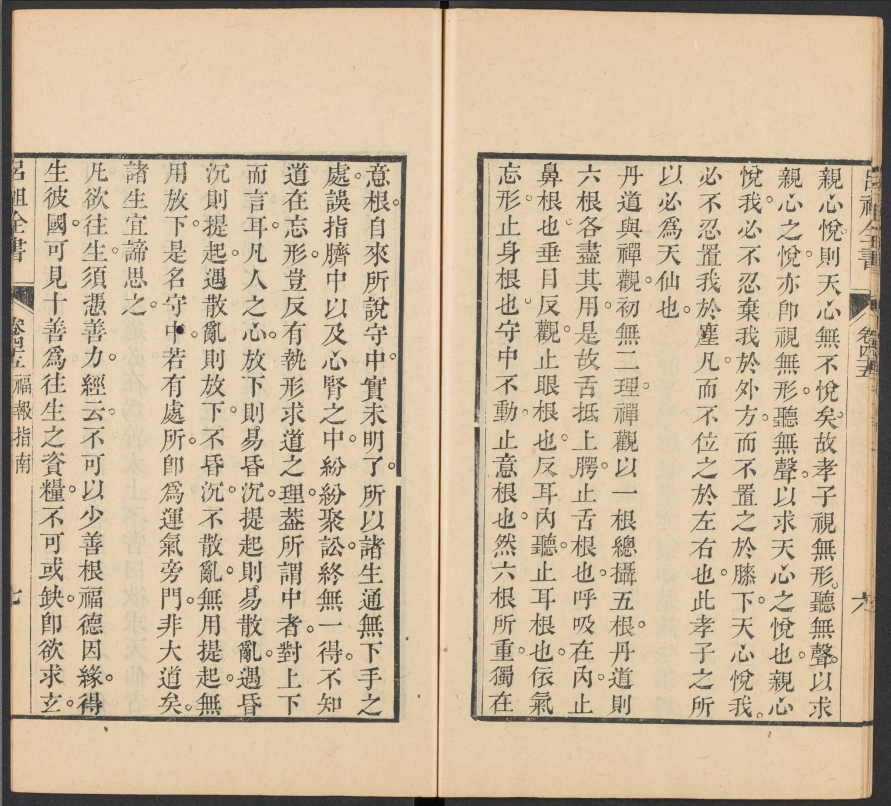 呂祖全書 卷四五 六
親心悅則天心無不悅矣故孝子視無形聽無聲以求
親心之悅亦卽視無形聽無聲以求天心之悅也親心
悅我必不忍棄我於外方而不置之於膝下天心悅我
必不忍置我於塵凡而不位之於左右也此孝子之所
以必爲天仙也
丹道與禪觀初無二理禪觀以一根總攝五根丹道則
六根各盡其用是故舌抵上腭止舌根也呼吸在內止
鼻根也垂目反觀止眼根也反耳內聽止耳根也依氣
忘形止身根也守中不動止意根也然六根所重獨在
意根自來所說守中實未明了所以諸生通無下手之
處誤指臍中以及心腎之中紛紛聚訟終無一得不知
道在忘形豈反有執形求道之理葢所謂中者對上下
而言耳凡人之心放下則易昏沉提起則易散亂遇昏
沉則提起遇散亂則放下不昏沉不散亂無用提起無
用放下是名守中若有處所卽爲運氣旁門非大道矣
諸生宜諦思之
凡欲往生須憑善力經云不可以少善根福德因緣得
生彼國可見十善爲往生之資糧不可或缺卽欲求玄
呂祖全書 卷四五 福報指南 七